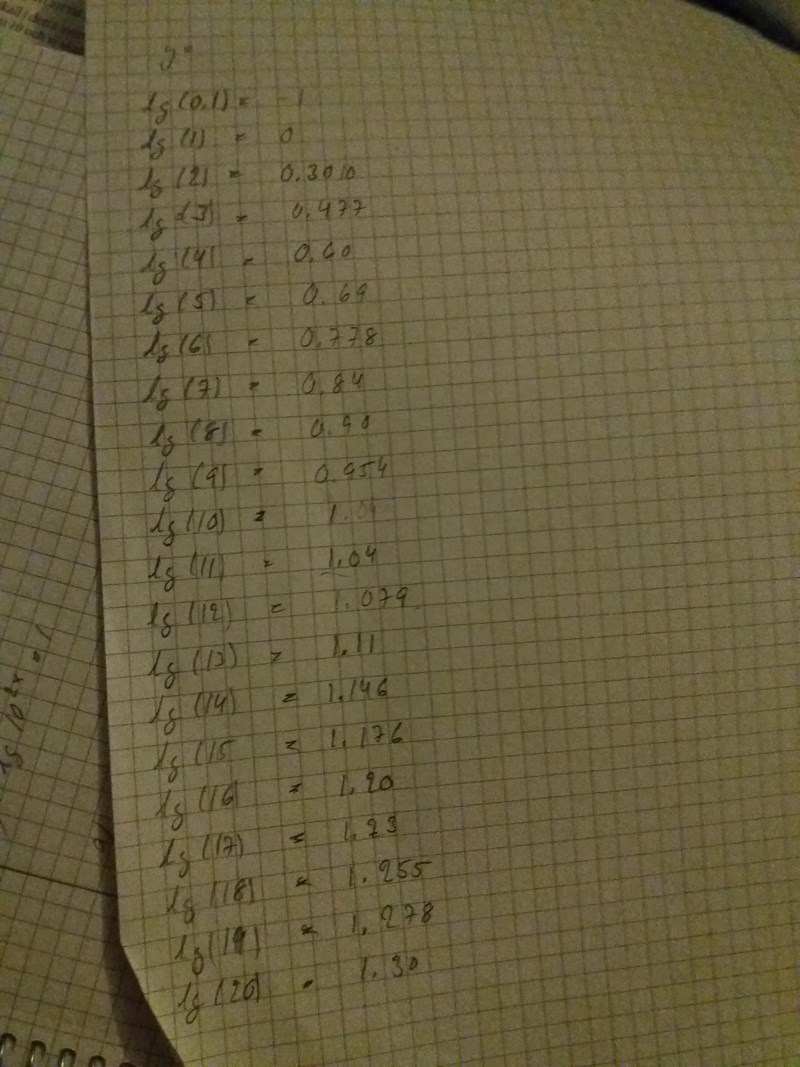 y=
lg(0,1) = -1
lg(1) = 0
lg(2) = 0.3010
lg(3) = 0.477
lg(4) = 0.60
lg(5) = 0.69
lg(6) = 0.778
lg(7) = 0.84
lg(8) = 0.90
lg(9) = 0.954
lg(10) = 1.
lg(11) = 1.04
lg(12) = 1.079
lg(13) = 1.11
lg(14) = 1.146
lg(15 = 1.176
lg(16) = 1.20
lg(17) = 1.23
lg(18) = 1.255
lg(19) = 1.278
lg(20) = 1.30
lg 10^2x = 1